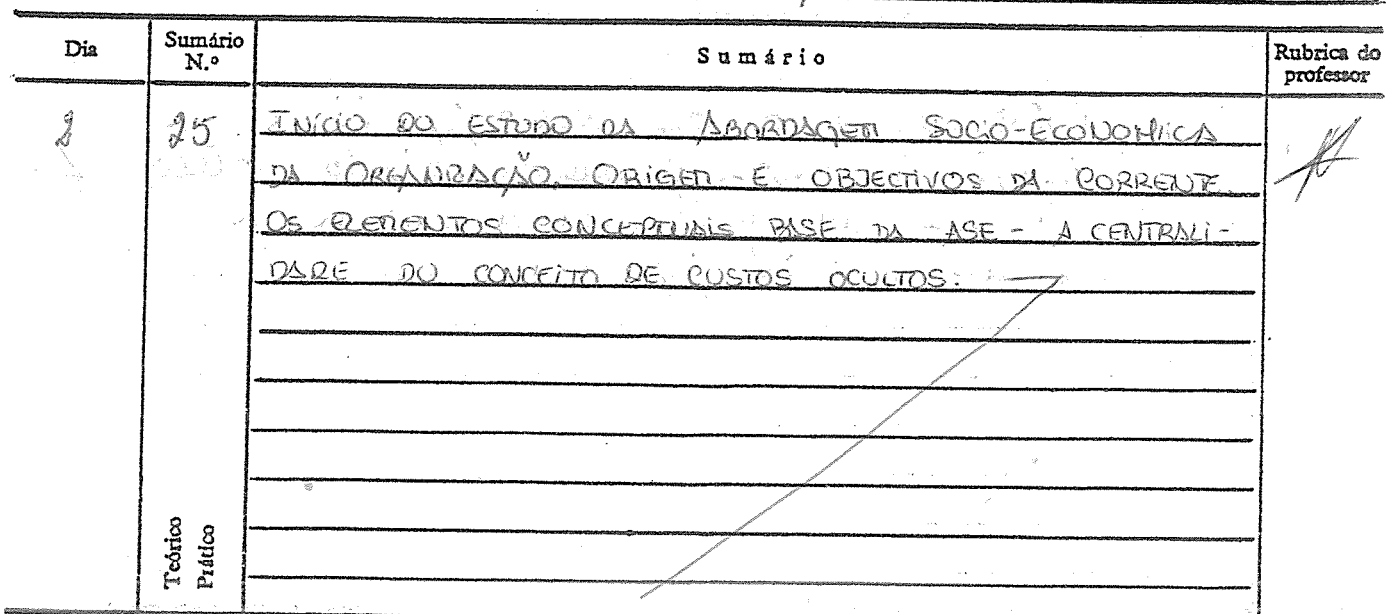 Dia Sumário N.º Sumário Rubrica do professor
2 25 INÍCIO DO ESTUDO DA ABORDAGEM SOCIO-ECONOMICA
DA ORGANIZAÇÃO. ORIGEM E OBJECTIVOS DA CORRENTE.
OS ELEMENTOS CONCEPTUAIS BASE DA ASE - A CENTRALI-
DADE DO CONCEITO DE CUSTOS OCULTOS.
Teórico
Prático